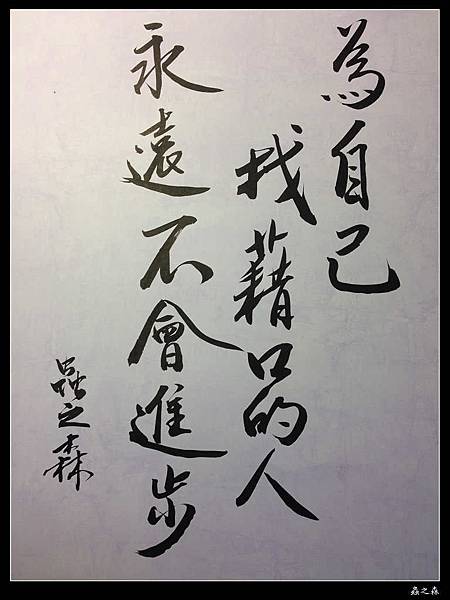 為自己
找藉口的人
永遠不會進步
蟲之森
蟲之森